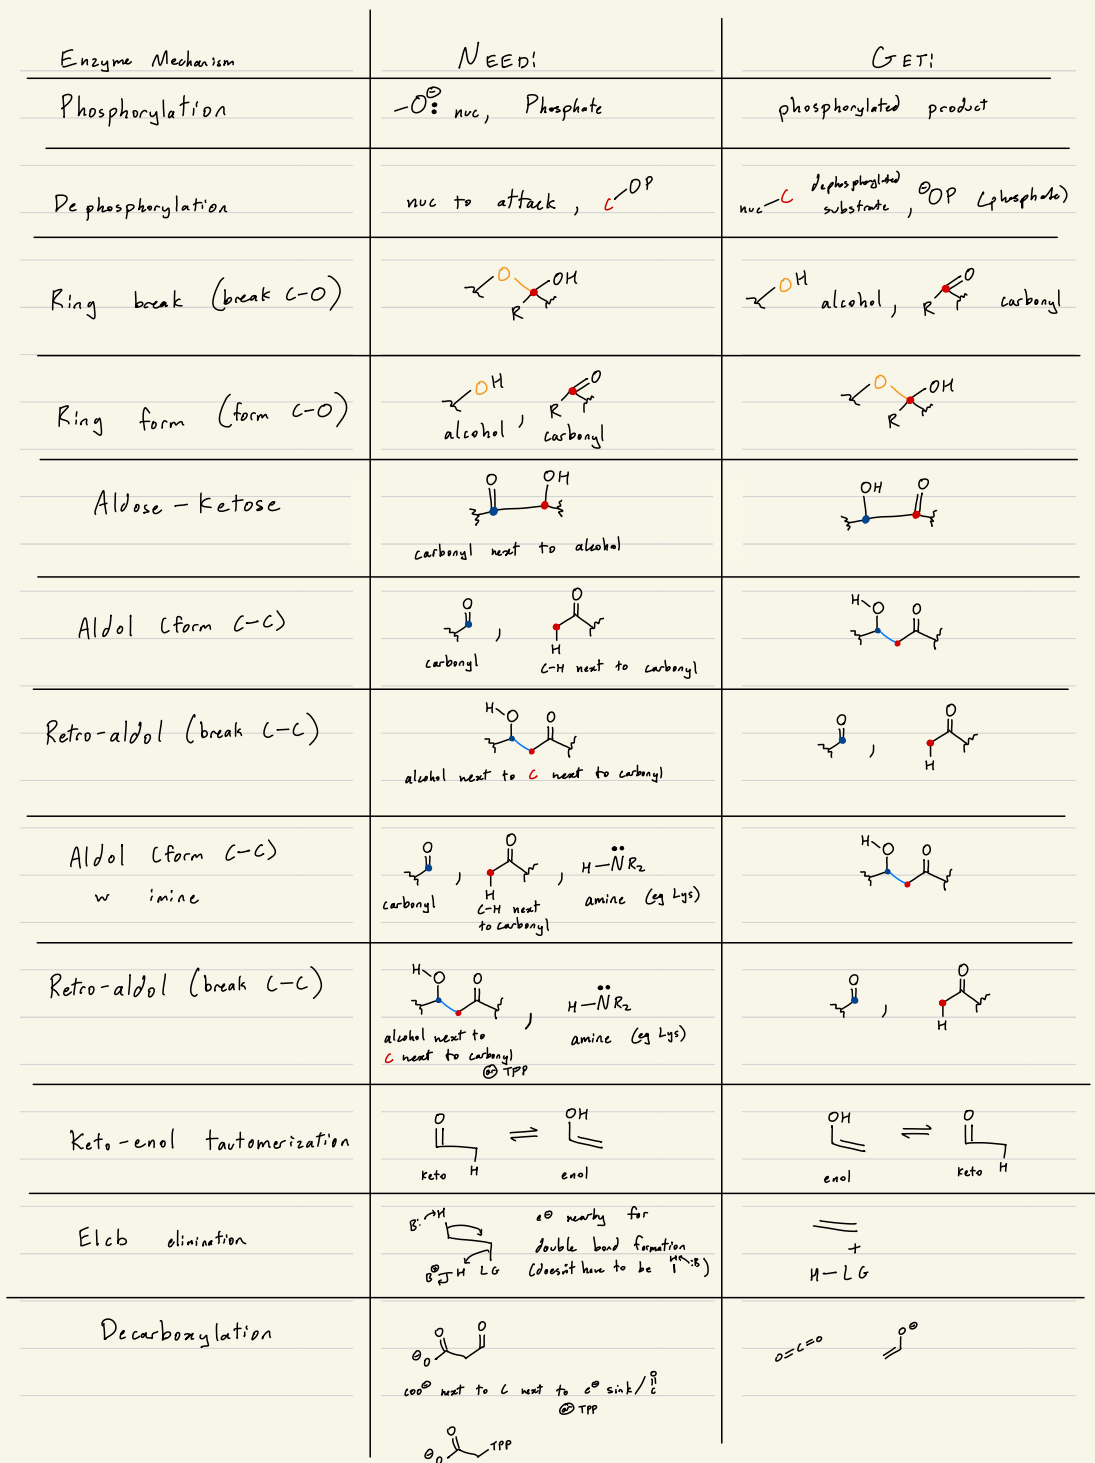 Enzyme Mechanism NEED: GET:
Phosphorylation −O:⊖ nuc, Phosphate phosphorylated product
Dephosphorylation nuc to attack, C OP nuc C dephosphorylated substrate, ⊖OP (phosphate)
Ring break (break C-O) O OH R OH alcohol, R O carbonyl
Ring form (form C-O) OH alcohol, R O carbonyl O OH R
Aldose - Ketose O OH OH O
carbonyl next to alcohol
Aldol (form C-C) O , O H H-O O
carbonyl C-H next to carbonyl
Retro-aldol (break C-C) H-O O O , O H
alcohol next to C next to carbonyl
Aldol (form C-C) O , O H , H-N̈R₂ H-O O
w imine carbonyl C-H next to carbonyl amine (eg Lys)
Retro-aldol (break C-C) H-O O , H-N̈R₂ O , O H
alcohol next to amine (eg Lys)
C next to carbonyl
or TPP
Keto-enol tautomerization O H ⇌ OH OH ⇌ O H
keto enol enol keto
E1cb elimination B: H e⊖ nearby for
double bond formation +
B⊕ H LG (doesn't have to be H :B) H-LG
Decarboxylation O O ⊖O O=C=O O⊖
COO⊖ next to C next to e⊖ sink/ O C
or TPP
O ⊖O TPP